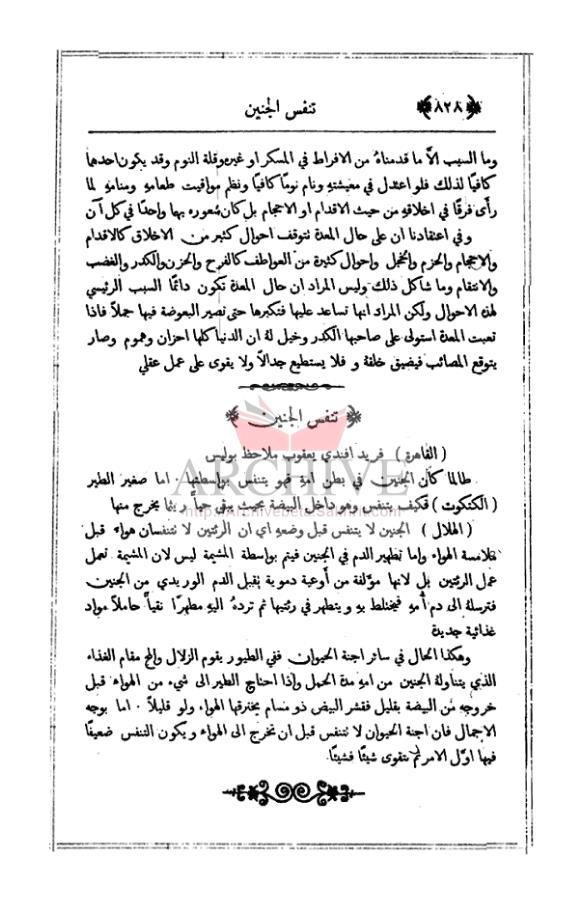 ﴿٨٢٨﴾ تنفس الجنين
وما السبب الاَّ ما قدمناهُ من الافراط في المسكر او غيره وقلة النوم وقد يكون احدهما
كافيًا لذلك فلو اعتدل في معيشتهِ ونام نومًا كافيًا ونظم مواقيت طعامهِ ومنامهِ لما
رأى فرقًا في اخلاقهِ من حيث الاقدام او الاحجام بل كان شعوره بها واحدًا في كل آن
وفي اعتقادنا ان على حال المعدة تتوقف احوال كثير من الاخلاق كالاقدام
والاحجام والحزم والخمول واحوال كثيرة من العواطف كالفرح والحزن والكدر والغضب
والانتقام وما شاكل ذلك وليس المراد ان حال المعدة تكون دائمًا السبب الرئيسي
لهذه الاحوال ولكن المراد انها تساعد عليها فتكبرها حتى تصير البعوضة فيها جملاً فاذا
تعبت المعدة استولى على صاحبها الكدر وخيل لهُ ان الدنيا كلها احزان وهموم وصار
يتوقع المصائب فيضيق خلقهُ و فلا يستطيع جدالاً ولا يقوى على عمل عقلي
﴿ تنفس الجنين ﴾
( القاهرة ) فريد افندي يعقوب ملاحظ بوليس
طالما كان الجنين في بطن امهِ فهو يتنفس بواسطتها . اما صغير الطير
( الكتكوت ) فكيف يتنفس وهو داخل البيضة بحيث يبقى حيًا ريثما يخرج منها
( الهلال ) الجنين لا يتنفس قبل وضعهِ اي ان الرئتين لا تتنفسان هواء قبل
ملامسة الهواء واما تطهير الدم في الجنين فيتم بواسطة المشيمة ليس لان المشيمة تعمل
عمل الرئتين بل لانها مؤلفة من أوعية دموية يُقبل الدم الوريدي من الجنين
فترسلهُ الى دم أمهِ فيختلط بهِ ويتطهر في رئتيها ثم تردهُ اليهِ مطهرًا نقيًا حاملاً مواد
غذائية جديدة
وهكذا الحال في سائر اجنة الحيوان ففي الطيور يقوم الزلال والمح مقام الغذاء
الذي يتناولهُ الجنين من امهِ مدة الحمل واذا احتاج الطير الى شيء من الهواء قبل
خروجهِ من البيضة بقليل فقشر البيض ذو مسام يخترقها الهواء ولو قليلاً . اما بوجه
الاجمال فان اجنة الحيوان لا تتنفس قبل ان تخرج الى الهواء ويكون التنفس ضعيفًا
فيها اوَّل الامر ثم يتقوى شيئًا فشيئًا.
ARCHIVE